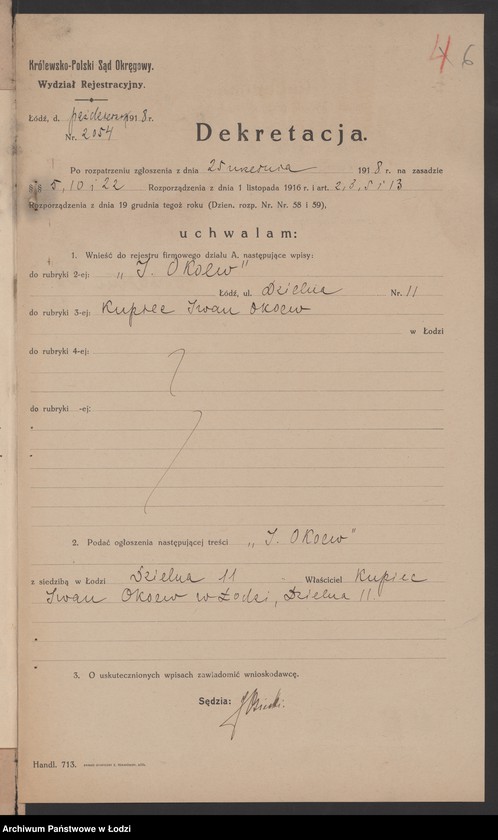 46
Królewsko-Polski Sąd Okręgowy.
Wydział Rejestracyjny.
Łódź, d. 1918 r.
Nr. 2054
Dekretacja.
Po rozpatrzeniu zgłoszenia z dnia 25 1918 r. na zasadzie
§§ 5, 10 i 22 Rozporządzenia z dnia 1 listopada 1916 r. i art. 2, 3, 5 i 13
Rozporządzenia z dnia 19 grudnia tegoż roku (Dzien. rozp. Nr. Nr. 58 i 59),
uchwalam:
1. Wnieść do rejestru firmowego działu A. następujące wpisy:
do rubryki 2-ej: „J. Okoew"
Łódź, ul. Dzielna Nr. 11
do rubryki 3-ej: Kupiec Iwan Okoew
w Łodzi
do rubryki 4-ej:
do rubryki -ej:
2. Podać ogłoszenia następującej treści „J. Okoew"
z siedzibą w Łodzi Dzielna 11 Właściciel Kupiec
Iwan Okoew w Łodzi, Dzielna 11.
3. O uskutecznionych wpisach zawiadomić wnioskodawcę.
Sędzia:
Handl. 713.
Archiwum Państwowe w Łodzi